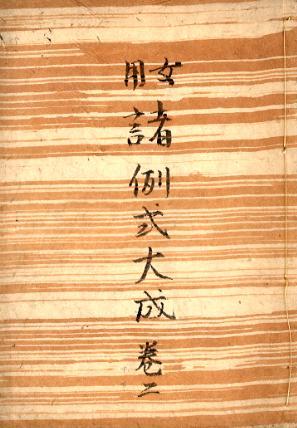 女用
諸例式大成 巻二